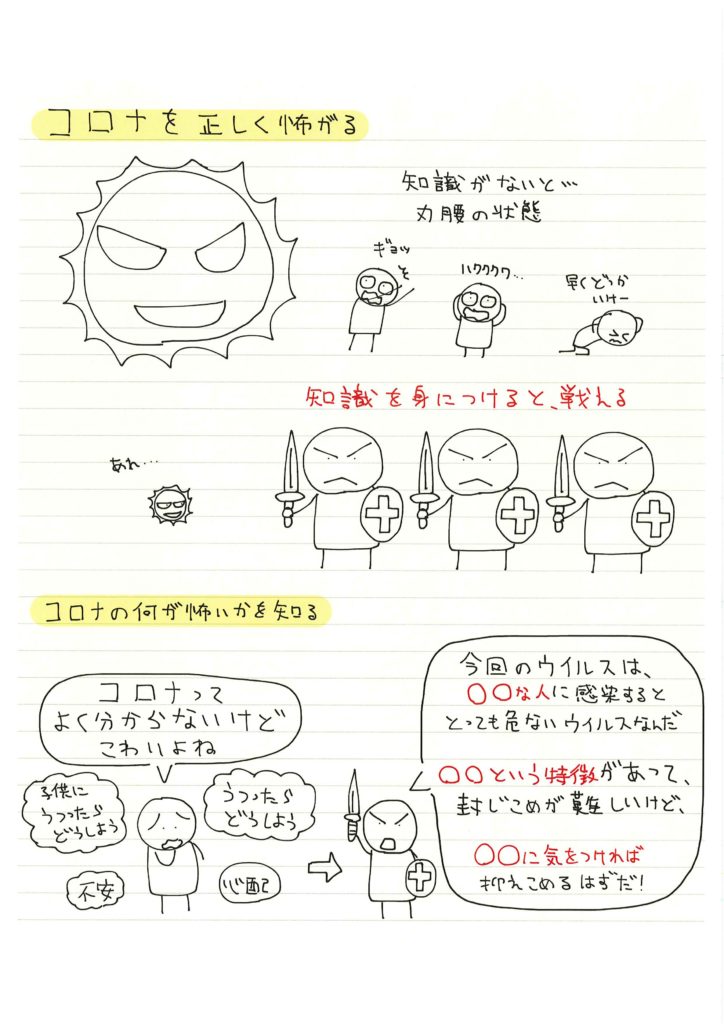 コロナを正しく怖がる
知識がないと…
丸腰の状態
ギョッ
ハワワワワ…
早くどっか
いけー
知識を身につけると、戦える
あれ…
コロナの何が怖いかを知る
コロナって
よく分からないけど
こわいよね
子供に
うつったら
どうしよう
うつったら
どうしよう
不安
心配
今回のウイルスは、
〇〇な人に感染すると
とっても危ないウイルスなんだ
〇〇という特徴があって、
封じこめが難しいけど、
〇〇に気をつければ
抑えこめるはずだ!